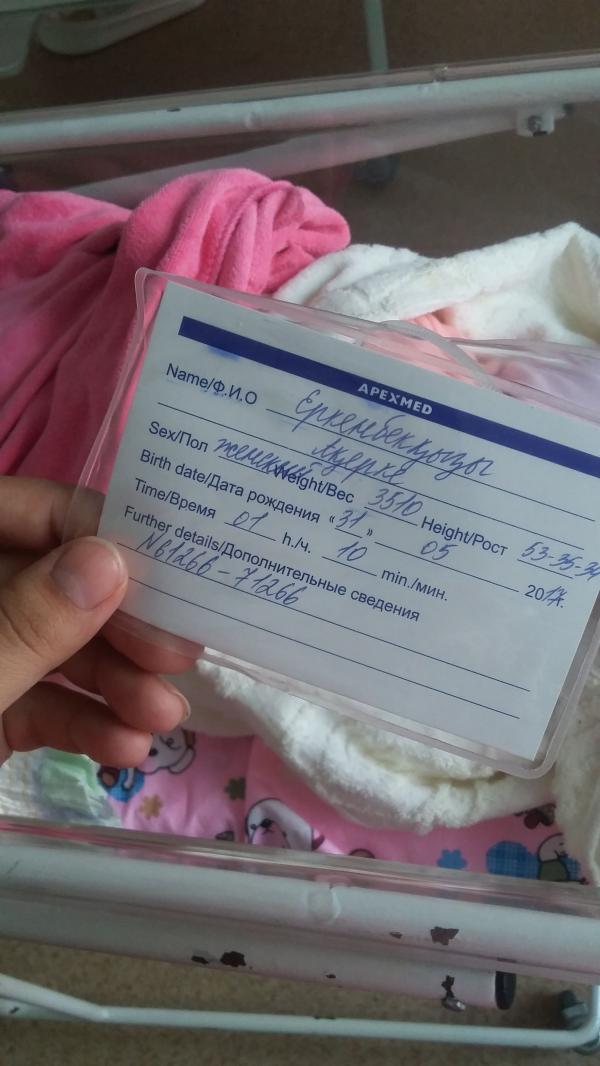 APEXMED
Name/Ф.И.О Еркенбекқызы
Ақерке
Sex/Пол женский Weight/Вес 3510 Height/Рост 53-35-34
Birth date/Дата рождения «31» 05 2017г.
Time/Время 01 h./ч. 10 min./мин.
Further details/Дополнительные сведения
N61266-71266